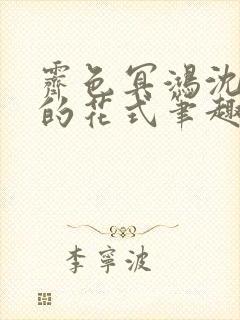 霽色冥鴻沈
的花式筆趣
李寧波